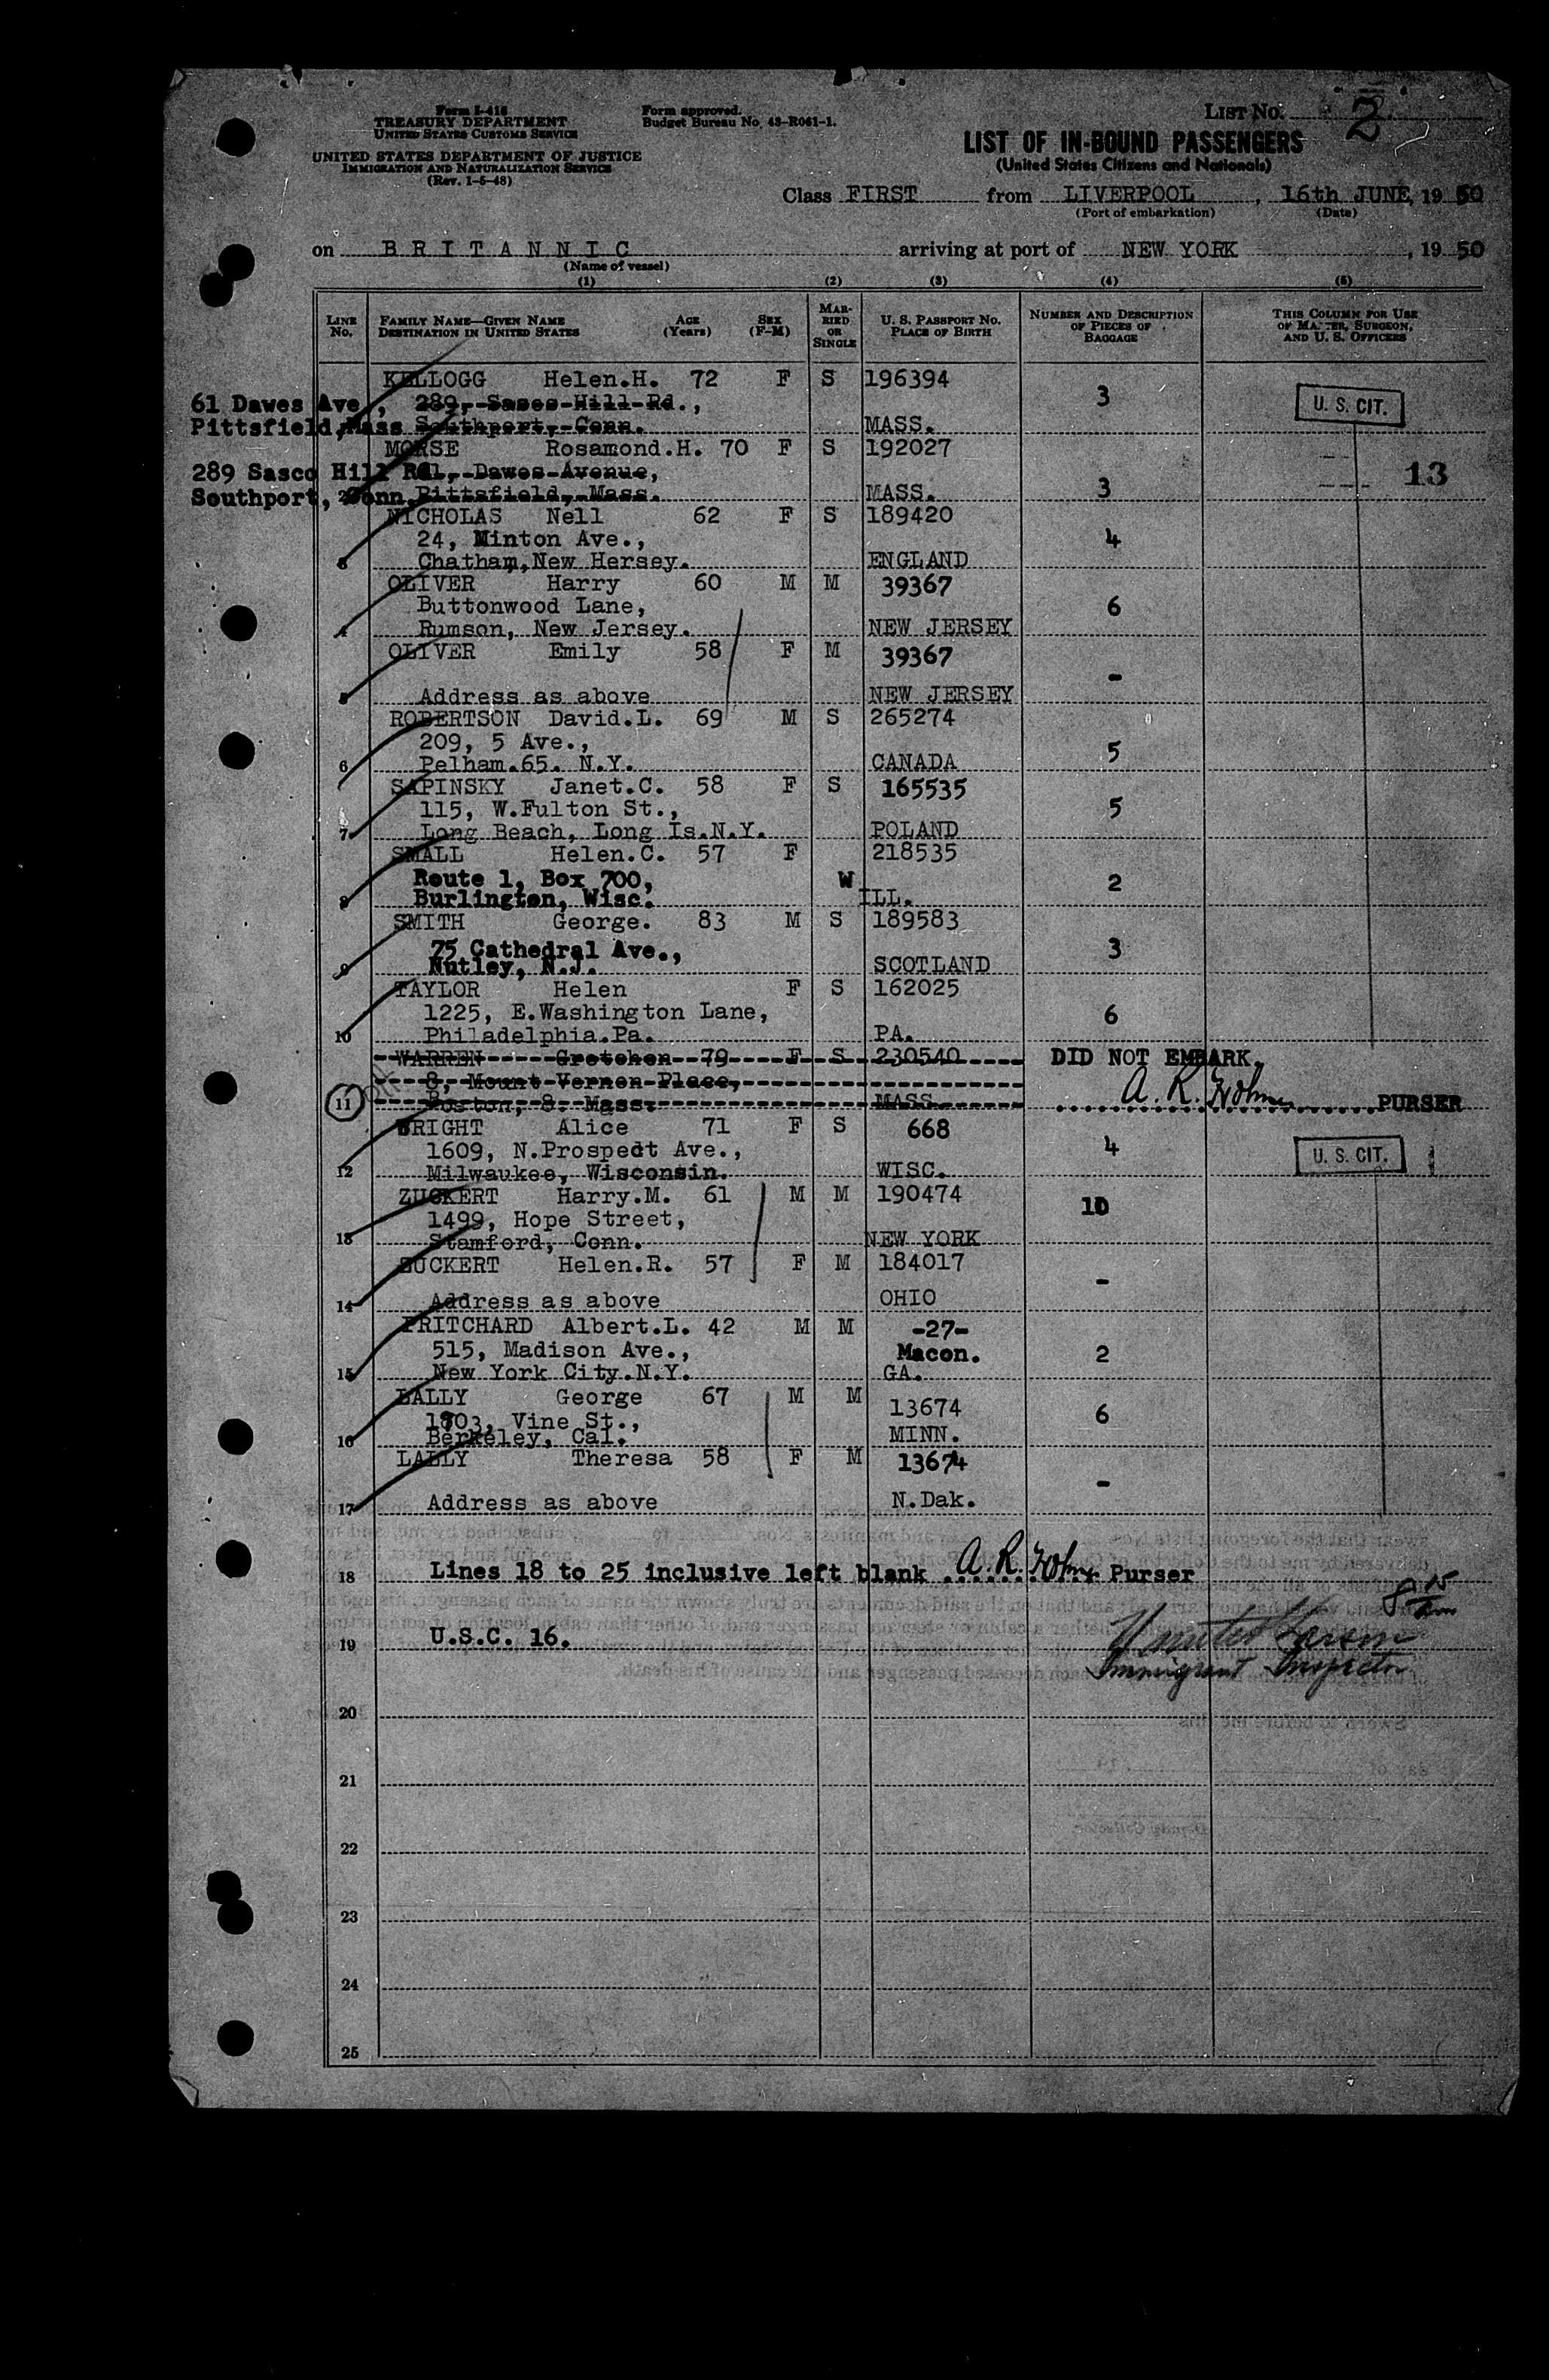 Form I-418
TREASURY DEPARTMENT
UNITED STATES CUSTOMS SERVICE
UNITED STATES DEPARTMENT OF JUSTICE
IMMIGRATION AND NATURALIZATION SERVICE
(Rev. 1-5-48)
Form approved.
Budget Bureau No. 43-R061-1.
LIST NO. 2
LIST OF IN-BOUND PASSENGERS
(United States Citizens and Nationals)
Class FIRST from LIVERPOOL, 16th JUNE, 1950
(Port of embarkation) (Date)
on BRITANNIC arriving at port of NEW YORK, 1950
(Name of vessel)
(1) (2) (3) (4) (5)
LINE No. FAMILY NAME—GIVEN NAME DESTINATION IN UNITED STATES AGE (Years) SEX (F-M) MARRIED OR SINGLE U. S. PASSPORT NO. PLACE OF BIRTH NUMBER AND DESCRIPTION OF PIECES OF BAGGAGE THIS COLUMN FOR USE OF MASTER, SURGEON, AND U. S. OFFICERS
KELLOGG Helen.H. 72 F S 196394 3 U. S. CIT.
61 Dawes Ave., 289, Sasco Hill Rd.,
Pittsfield, Mass Southport, Conn. MASS.
MORSE Rosamond.H. 70 F S 192027 3 13
289 Sasco Hill Rd. Dawes Avenue,
Southport, Conn. 2 Pittsfield, Mass. MASS.
NICHOLAS Nell 62 F S 189420 4
24, Minton Ave.,
3 Chatham,New Hersey. ENGLAND
OLIVER Harry 60 M M 39367 6
Buttonwood Lane,
4 Rumson, New Jersey. NEW JERSEY
OLIVER Emily 58 F M 39367 -
5 Address as above NEW JERSEY
ROBERTSON David.L. 69 M S 265274 5
209, 5 Ave.,
6 Pelham.65. N.Y. CANADA
SAPINSKY Janet.C. 58 F S 165535 5
115, W.Fulton St.,
7 Long Beach, Long Is.N.Y. POLAND
SMALL Helen.C. 57 F W 218535 2
Route 1, Box 700,
8 Burlington, Wisc. ILL.
SMITH George. 83 M S 189583 3
75 Cathedral Ave.,
9 Nutley, N.J. SCOTLAND
TAYLOR Helen F S 162025 6
1225, E.Washington Lane,
10 Philadelphia.Pa. PA.
WARREN Gretchen 79 F S 230540 DID NOT EMBARK.
8, Mount Vernon Place,
11 Boston, 8. Mass. MASS. A. R. PURSER
WRIGHT Alice 71 F S 668 4 U. S. CIT.
1609, N.Prospect Ave.,
12 Milwaukee, Wisconsin. WISC.
ZUCKERT Harry.M. 61 M M 190474 10
1499, Hope Street,
13 Stamford, Conn. NEW YORK
ZUCKERT Helen.R. 57 F M 184017 -
14 Address as above OHIO
PRITCHARD Albert.L. 42 M M -27- 2
515, Madison Ave., Macon.
15 New York City.N.Y. GA.
LALLY George 67 M M 13674 6
1903, Vine St.,
16 Berkeley, Cal. MINN.
LALLY Theresa 58 F M 13674 -
17 Address as above N.Dak.
18 Lines 18 to 25 inclusive left blank A. R. Purser
19 U.S.C. 16.
Immigrant Inspector
20
21
22
23
24
25